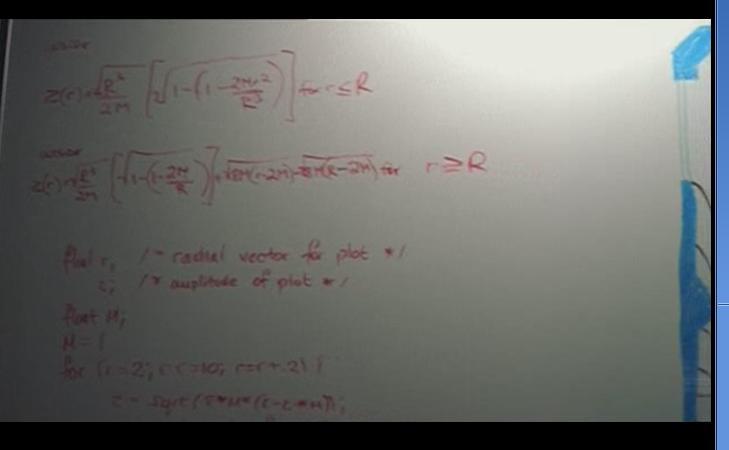 z(r)=√R³/2M [√1-(1-2Mr²/R³)] for r≤R
z(r)=√R³/2M [√1-(1-2M/R)]+√8M(r-2M)-√8M(R-2M) for r≥R
float r, /* radial vector for plot */
z; /* amplitude of plot */
float M;
M = 1
for (r=2; r<=10; r=r+.2) {
z = sqrt(8*M*(r-2*M));